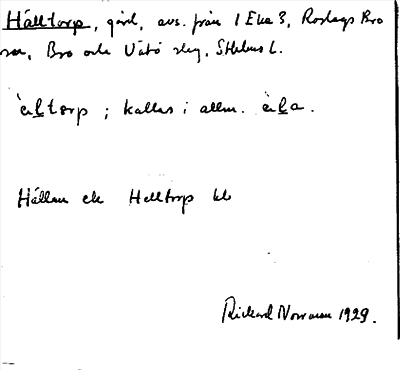 Hälltorp, gård, avs. från 1 Eka 3, Roslags Bro
sn, Bro och Vätö skg, Sthlms L.
èḵtorp ; kallas i allm. èḵa.
Hällan el. Helltorp kb
Rickard Norrman 1929.